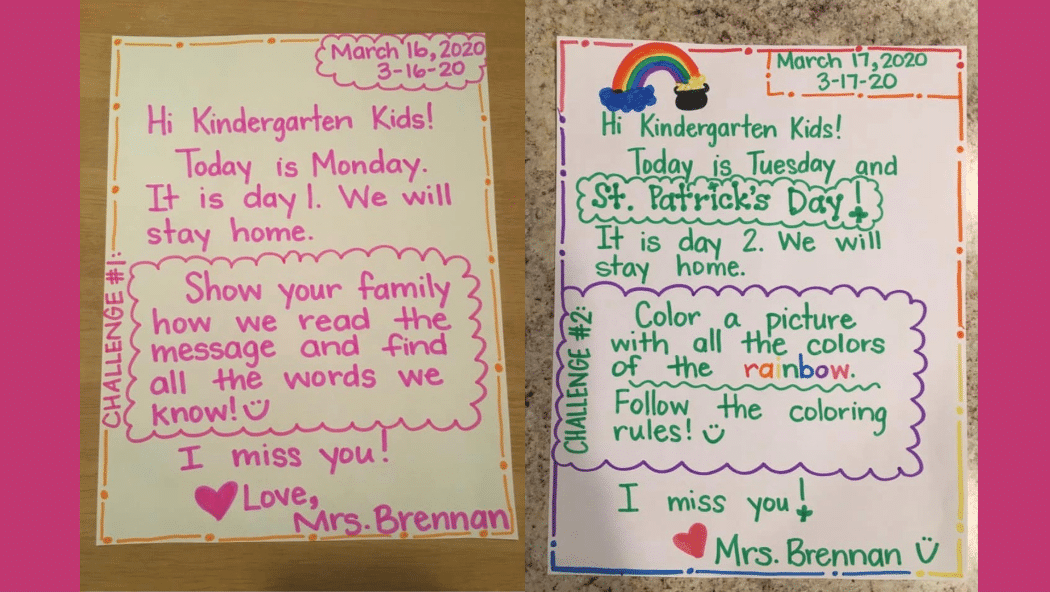 March 16, 2020
3-16-20
Hi Kindergarten Kids!
Today is Monday.
It is day 1. We will
stay home.
CHALLENGE #1:
Show your family
how we read the
message and find
all the words we
know!
I miss you!
Love,
Mrs. Brennan
March 17, 2020
3-17-20
Hi Kindergarten Kids!
Today is Tuesday and
St. Patrick's Day!
It is day 2. We will
stay home.
CHALLENGE #2:
Color a picture
with all the colors
of the rainbow.
Follow the coloring
rules!
I miss you!
Mrs. Brennan